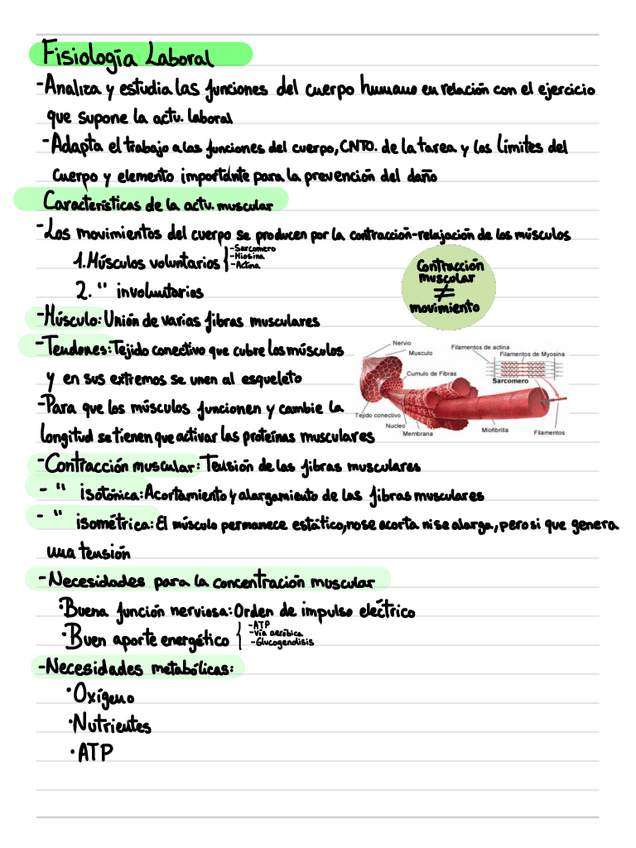 Fisiología Laboral
-Analiza y estudia las funciones del cuerpo humano en relación con el ejercicio
que supone la actu. laboral
-Adapta el trabajo a las funciones del cuerpo, CNTO. de la tarea y los límites del
cuerpo y elemento importante para la prevención del daño
Características de la actu. muscular
-Los movimientos del cuerpo se producen por la contracción-relajación de los músculos
1. Músculos voluntarios
-Sarcomero
-Miosina
-Actina
2. " involuntarios
Contracción
muscular
≠
movimiento
-Músculo: Unión de varias fibras musculares
-Tendones: Tejido conectivo que cubre los músculos
y en sus extremos se unen al esqueleto
-Para que los músculos funcionen y cambie la
longitud se tienen que activar las proteínas musculares
Nervio
Musculo
Cumulo de Fibras
Filamentos de actina
Filamentos de Myosina
Sarcomero
Tejido conectivo
Nucleo
Membrana
Miofibrilla
Filamentos
-Contracción muscular: Tensión de las fibras musculares
- " isotónica: Acortamiento y alargamiento de las fibras musculares
- " isométrica: El músculo permanece estático, no se acorta ni se alarga, pero si que genera
una tensión
-Necesidades para la concentración muscular
·Buena función nerviosa: Orden de impulso eléctrico
·Buen aporte energético
-ATP
-Vía aeróbica
-Glucogenolisis
-Necesidades metabólicas:
·Oxígeno
·Nutrientes
·ATP